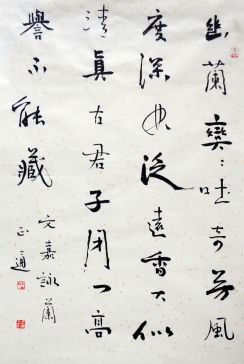 幽蘭奕々吐奇芳風
度深泛遠香大似
清真古君子閉門高
譽不能藏
文嘉詠蘭
正通